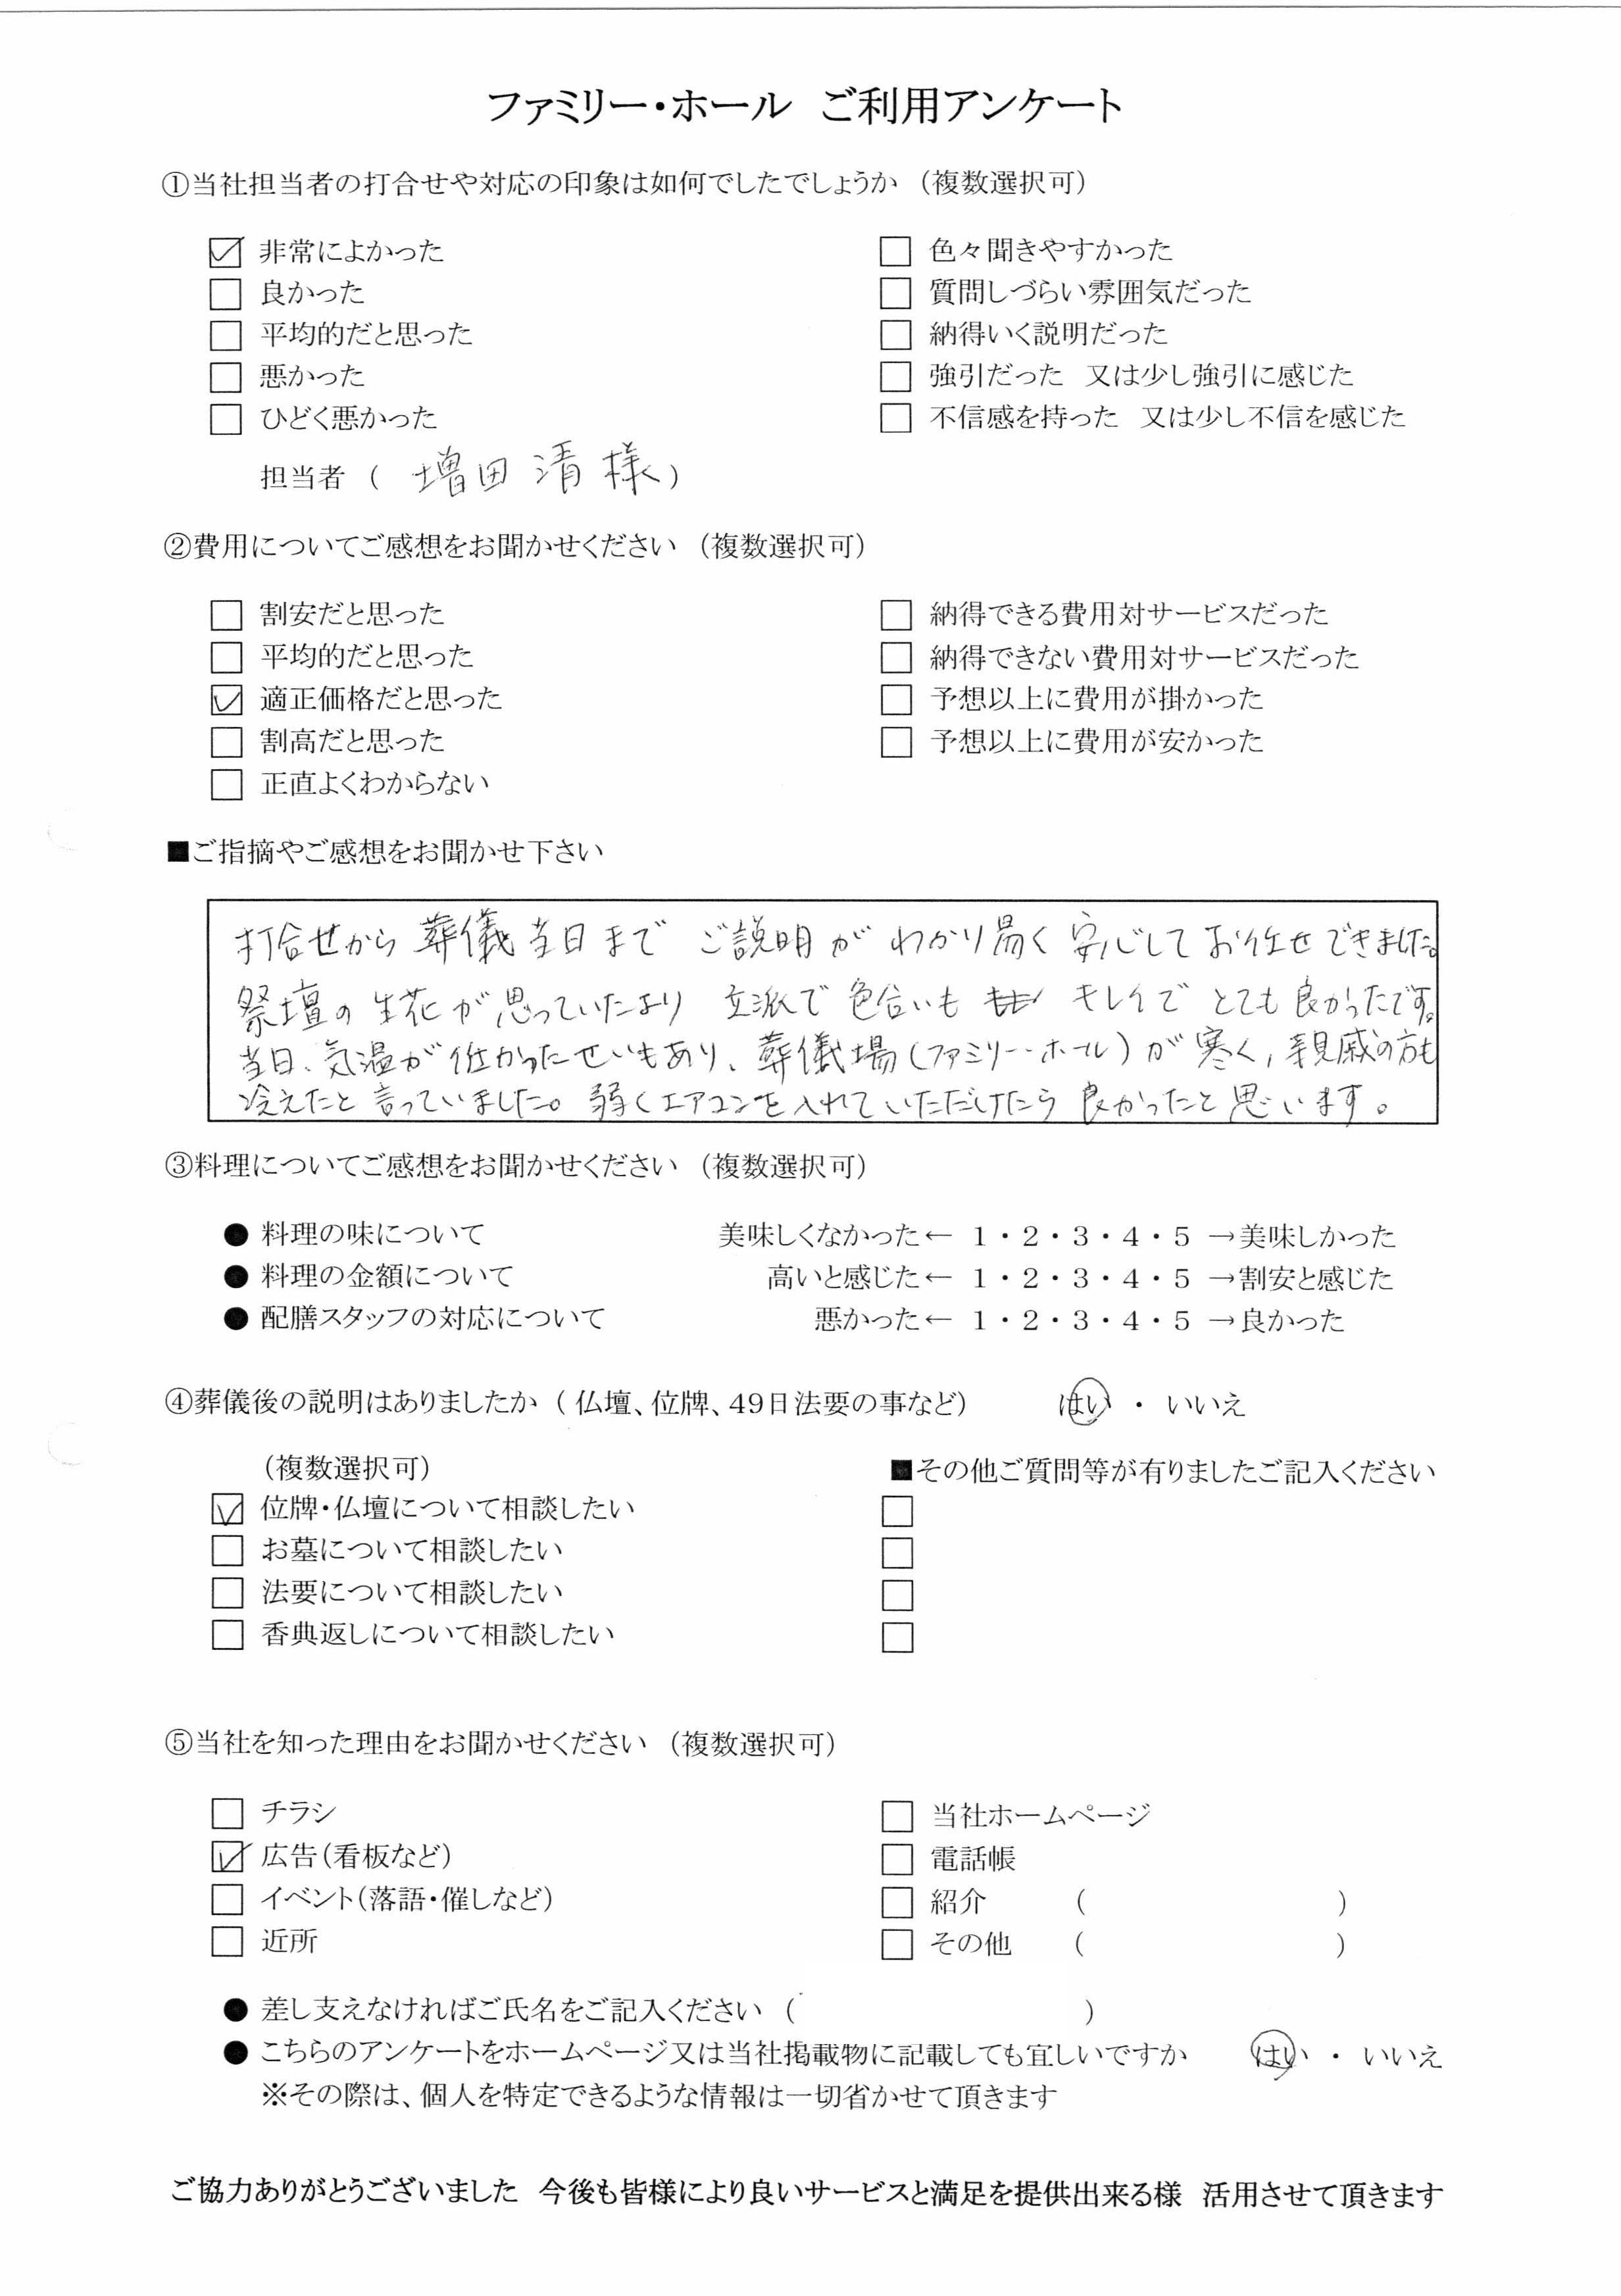 ファミリー・ホール　ご利用アンケート
①当社担当者の打合せや対応の印象は如何でしたでしょうか （複数選択可）
☑ 非常によかった　□ 色々聞きやすかった
□ 良かった　□ 質問しづらい雰囲気だった
□ 平均的だと思った　□ 納得いく説明だった
□ 悪かった　□ 強引だった　又は少し強引に感じた
□ ひどく悪かった　□ 不信感を持った　又は少し不信を感じた
担当者 （ 増田清様 ）
②費用についてご感想をお聞かせください （複数選択可）
□ 割安だと思った　□ 納得できる費用対サービスだった
□ 平均的だと思った　□ 納得できない費用対サービスだった
☑ 適正価格だと思った　□ 予想以上に費用が掛かった
□ 割高だと思った　□ 予想以上に費用が安かった
□ 正直よくわからない
■ご指摘やご感想をお聞かせ下さい
打合せから葬儀当日まで ご説明が わかり易く 安心して お任せできました。
祭壇の生花が思っていたより 立派で 色合いも キレイで とても良かったです。
当日、気温が低かったせいもあり、葬儀場(ファミリー・ホール)が寒く、親戚の方も
冷えたと言っていました。弱くエアコンを入れていただけたら良かったと思います。
③料理についてご感想をお聞かせください （複数選択可）
● 料理の味について　美味しくなかった← 1・2・3・4・5 →美味しかった
● 料理の金額について　高いと感じた← 1・2・3・4・5 →割安と感じた
● 配膳スタッフの対応について　悪かった← 1・2・3・4・5 →良かった
④葬儀後の説明はありましたか （ 仏壇、位牌、49日法要の事など）　はい ・ いいえ
（複数選択可）　■その他ご質問等が有りましたご記入ください
☑ 位牌・仏壇について相談したい　□
□ お墓について相談したい　□
□ 法要について相談したい　□
□ 香典返しについて相談したい　□
⑤当社を知った理由をお聞かせください （複数選択可）
□ チラシ　□ 当社ホームページ
☑ 広告（看板など）　□ 電話帳
□ イベント（落語・催しなど）　□ 紹介　（　　　）
□ 近所　□ その他　（　　　）
● 差し支えなければご氏名をご記入ください （　　　）
● こちらのアンケートをホームページ又は当社掲載物に記載しても宜しいですか　はい ・ いいえ
※その際は、個人を特定できるような情報は一切省かせて頂きます
ご協力ありがとうございました　今後も皆様により良いサービスと満足を提供出来る様　活用させて頂きます